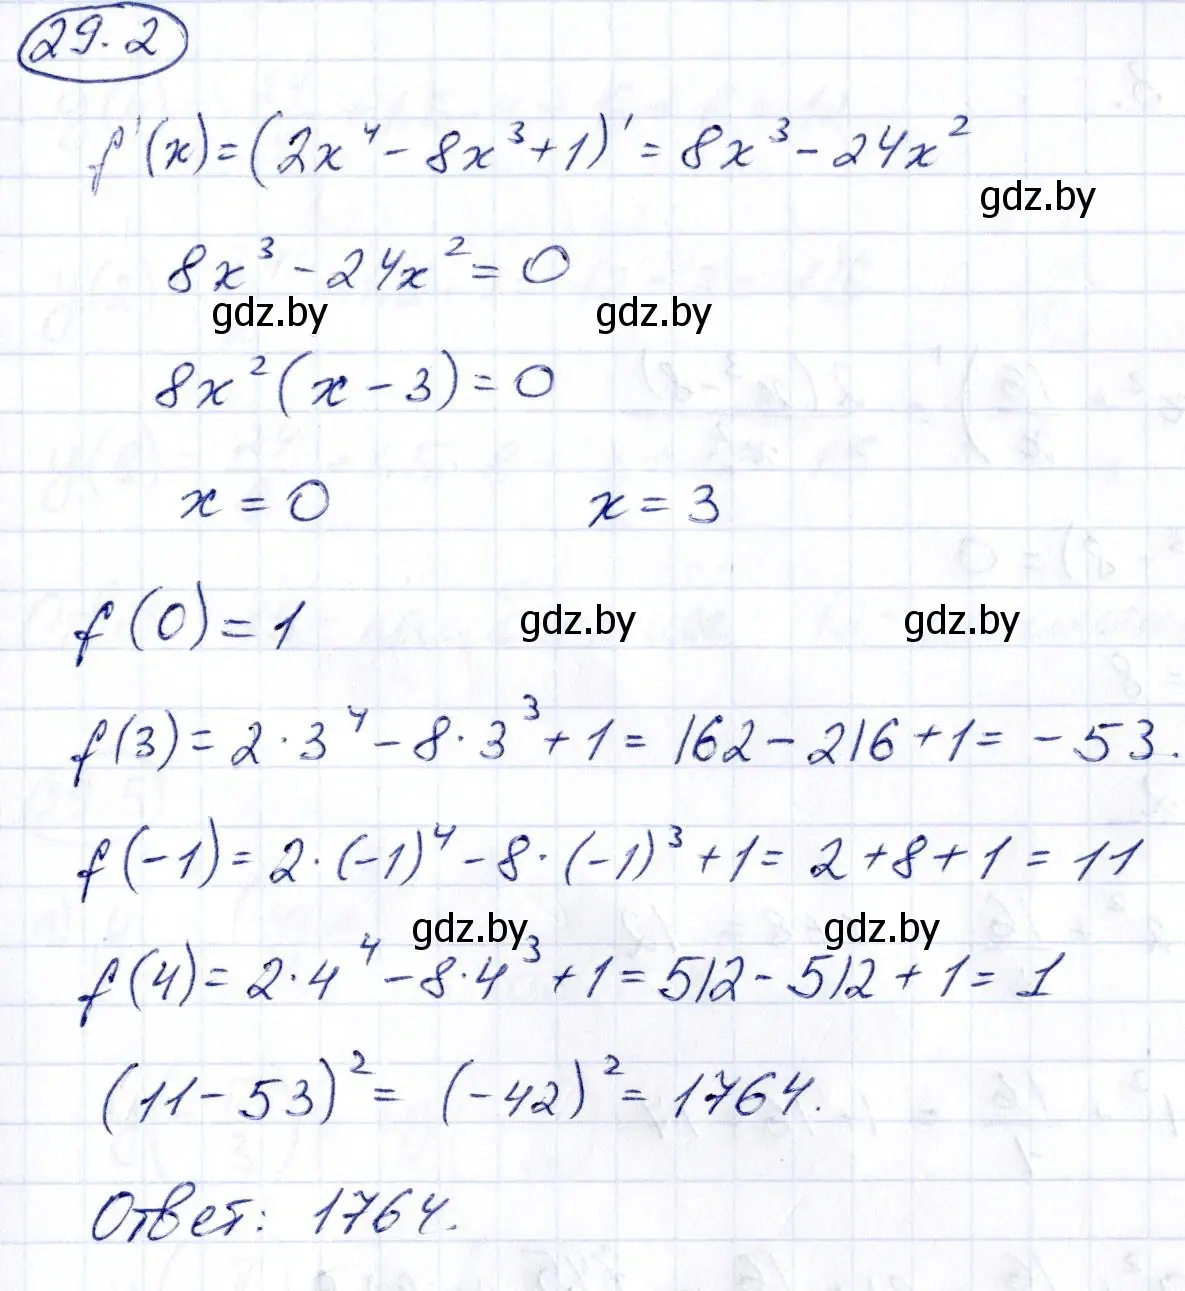 29.2
f'(x) = (2x⁴ - 8x³ + 1)' = 8x³ - 24x²
gdz.by
8x³ - 24x² = 0
gdz.by gdz.by
8x²(x - 3) = 0
x = 0 x = 3
f(0) = 1
gdz.by gdz.by
f(3) = 2·3⁴ - 8·3³ + 1 = 162 - 216 + 1 = -53.
f(-1) = 2·(-1)⁴ - 8·(-1)³ + 1 = 2 + 8 + 1 = 11
gdz.by gdz.by
f(4) = 2·4⁴ - 8·4³ + 1 = 512 - 512 + 1 = 1
(11 - 53)² = (-42)² = 1764.
Ответ: 1764.